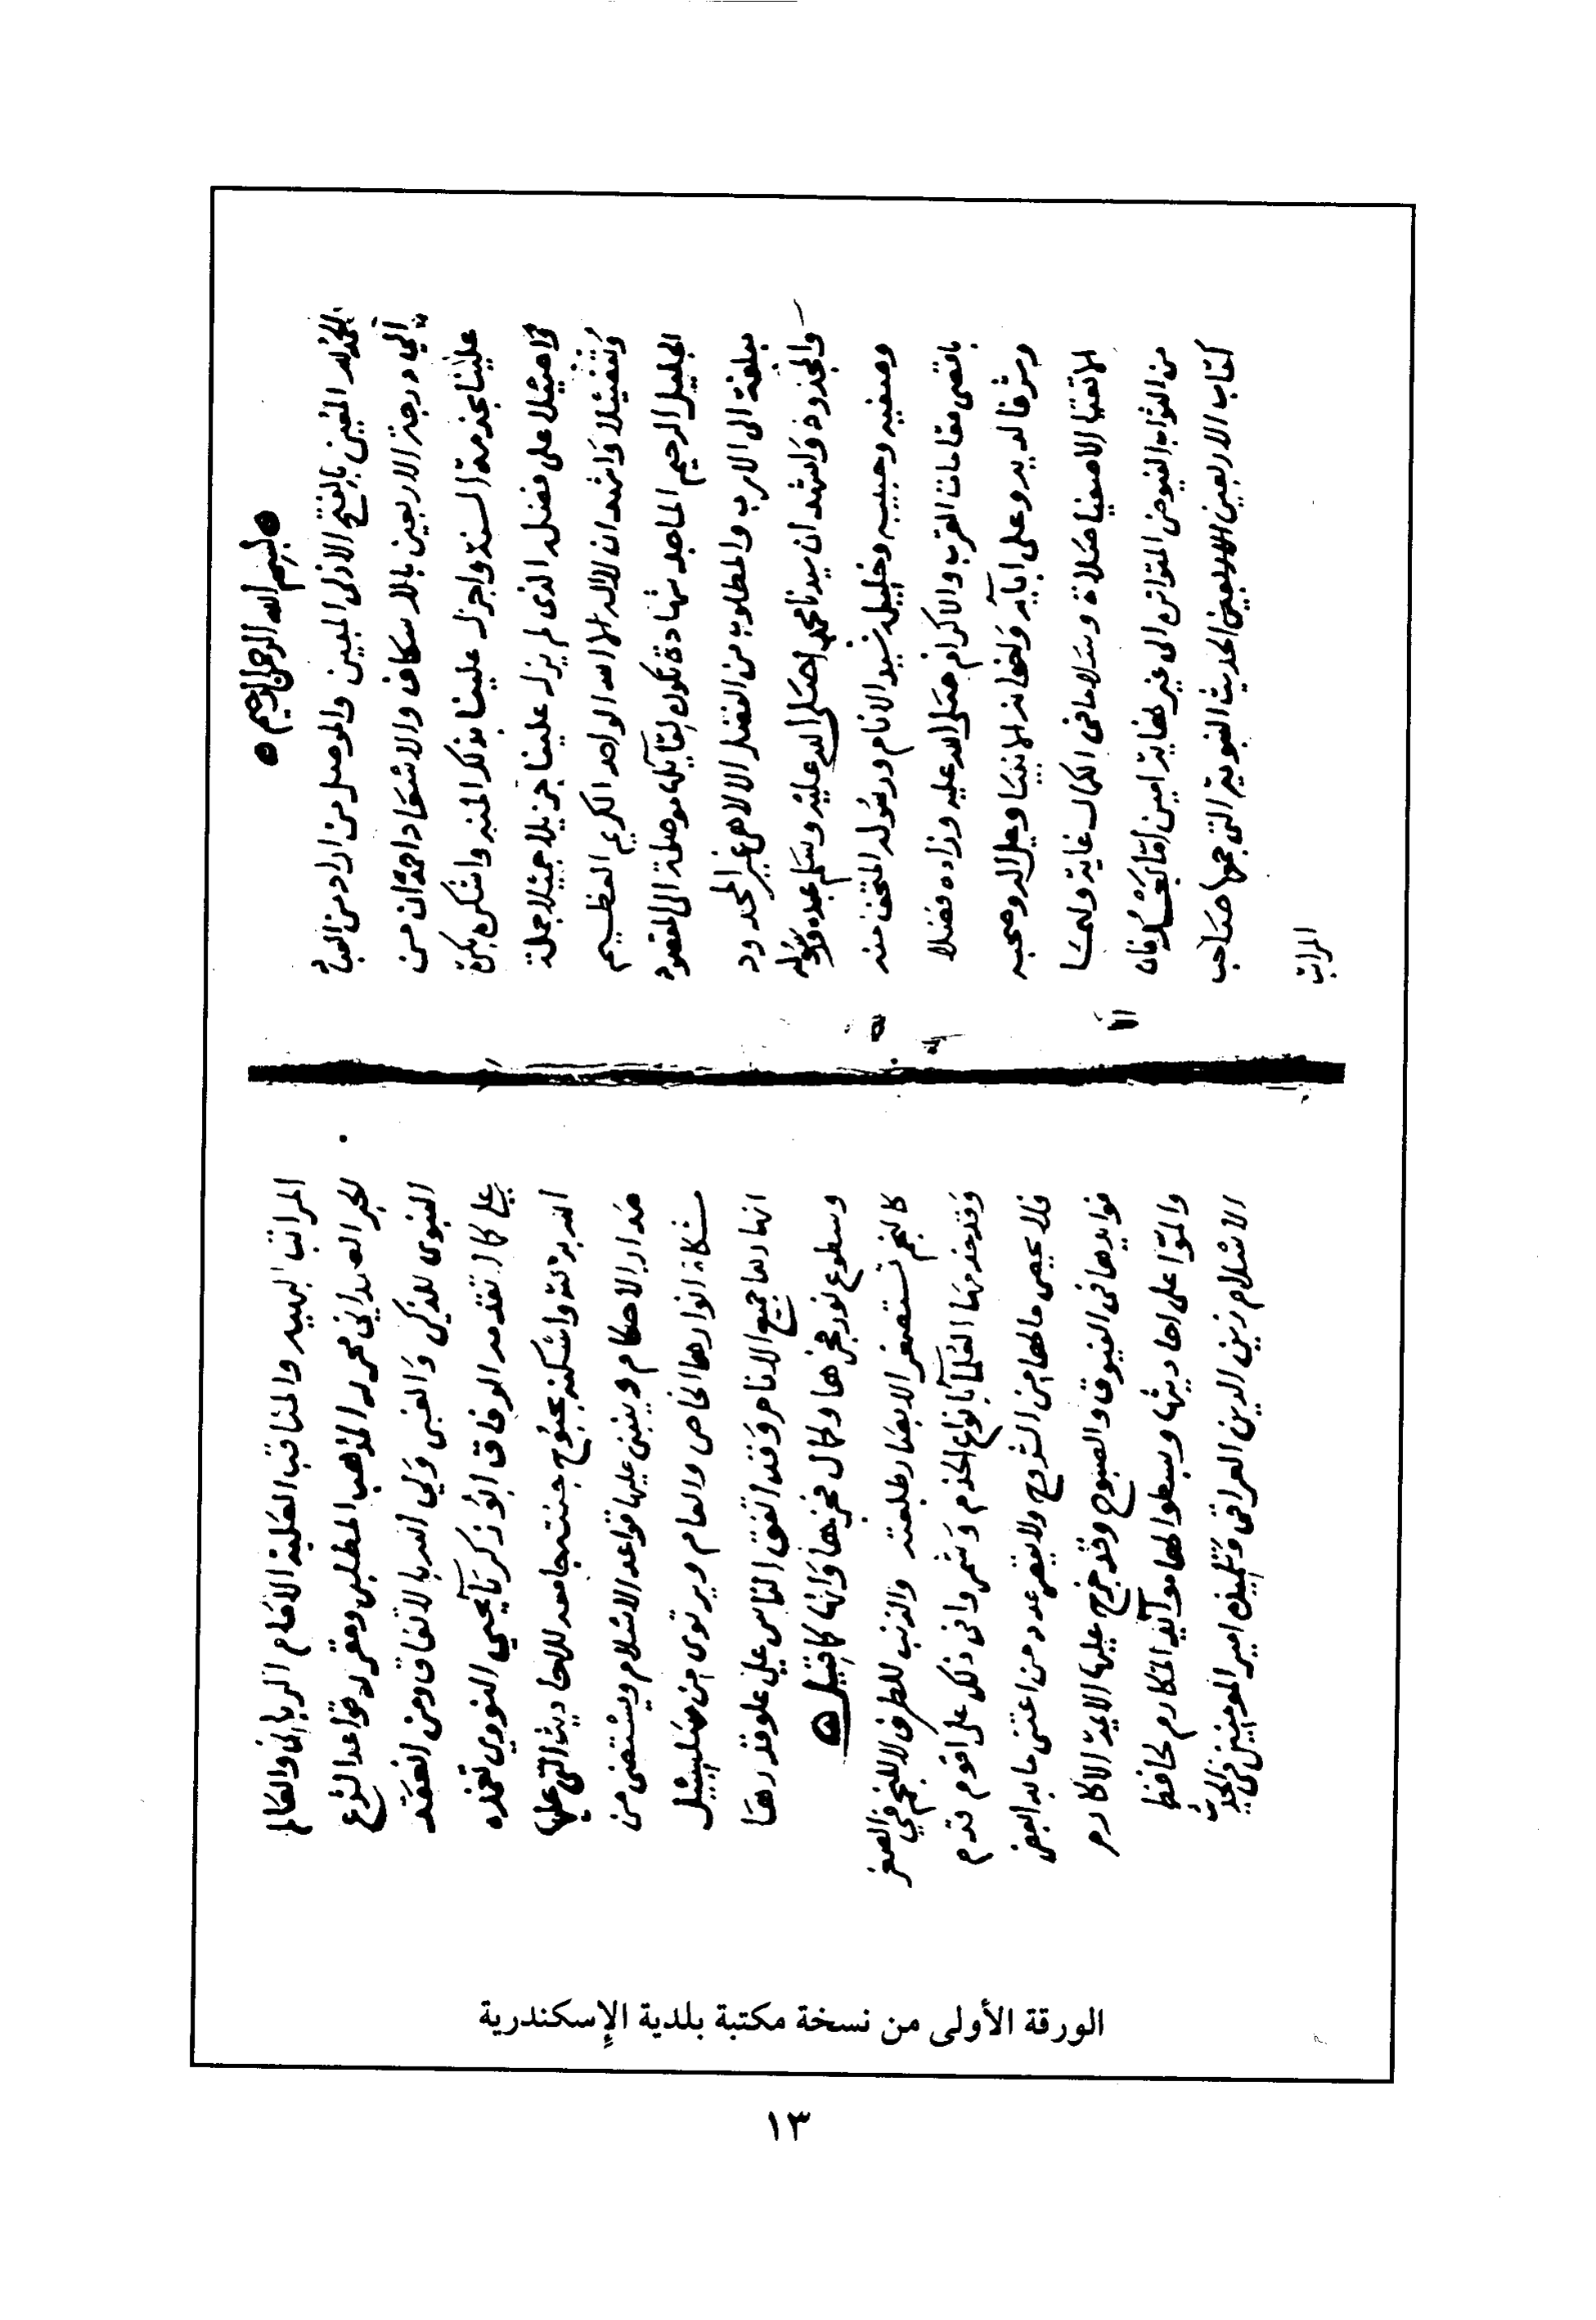 بسم الله الرحمن الرحيم
الحمد لله المعين بالفتح الازلى المبين والموصل من اراد من العباد
الي درجة الاربعين بالاسكاف والاسعاد احمده ان من
علينا بخدمة السنة واجزل علينا بذلك المنة واشكره بكرة
واصيلا على فضله الذى لم يزل علينا جزيلا جميلا جملة
وتفضيلا واشهد ان لا اله الا الله الواحد الكريم العظيم
الجليل الرحيم الماجد شهادة تكون لقايلها موصلة الى المقصود
مبلغة الى الارب والمطلوب من الفضل الالاهى غير المحدود
والمجذوذ واشهد ان سيدنا محمدا صلى الله عليه وسلم عبده ورسوله
وصفيه وحبيبه وخليله سيد الانام ورسوله المتحف منه
باقصى مقامات القرب والاكرام صلى الله عليه وزاده فضلا
وشرفا لديه وعلى ابايه واخوانه الانبيا وعلى اله وصحبه
الاتقيا الاصفيا صلاة وسلاما في الكمال غاية ولهما
من الثواب الفيوض المتواتر الى غير نهاية امين اما بعد فان
كتاب الاربعين الحديث النبوية التي جمعها صاحب
المراتب
المراتب البهيه والمناقب العلية الامام الرباني والعالم
الحبر الصمداني محرر المذهب المطلبى ومقرر قواعد الشرع
النبوى للذكي والغبى ولي الله بالاتفاق ومن انعقد
علي كماله الوفاق ابو زكريا يحيي النووي تغمده
الله برحمته واسكنه بحبوح جنته جامعه للاحاديث التى عليها
مدار الاحكام وينبنى عليها قواعد الاسلام ويستضى من
مشكاة انوارها الخاص والعام ويرتوى من سلسبيل
انهارها جميع الانام وقد اتفق الناس علي علو قدرها
وسطوع نور فجرها وكمال فخرها وانها كما قيل
كالنجم تستصغر الابصار طلعته والذنب للطرف لا للنجم في الصغر
وقد خدمها العلما بانواع الخدم وشمروا في ذلك على اقوم قدم
فلا يحصى مالها من الشروح ولا يحصر عدد من اعتنى
فوايدها في الغبوق والصبوح وقد خرج عليها الايمة الاكارم
واملوا على احاديثها وبسطوا لها موآئد المكارم كحافظ
الاسلام زين الدين العراقي وتلميذه امير المومنين في الحديث
الورقة الأولى من نسخة مكتبة بلدية الإسكندرية
١٣